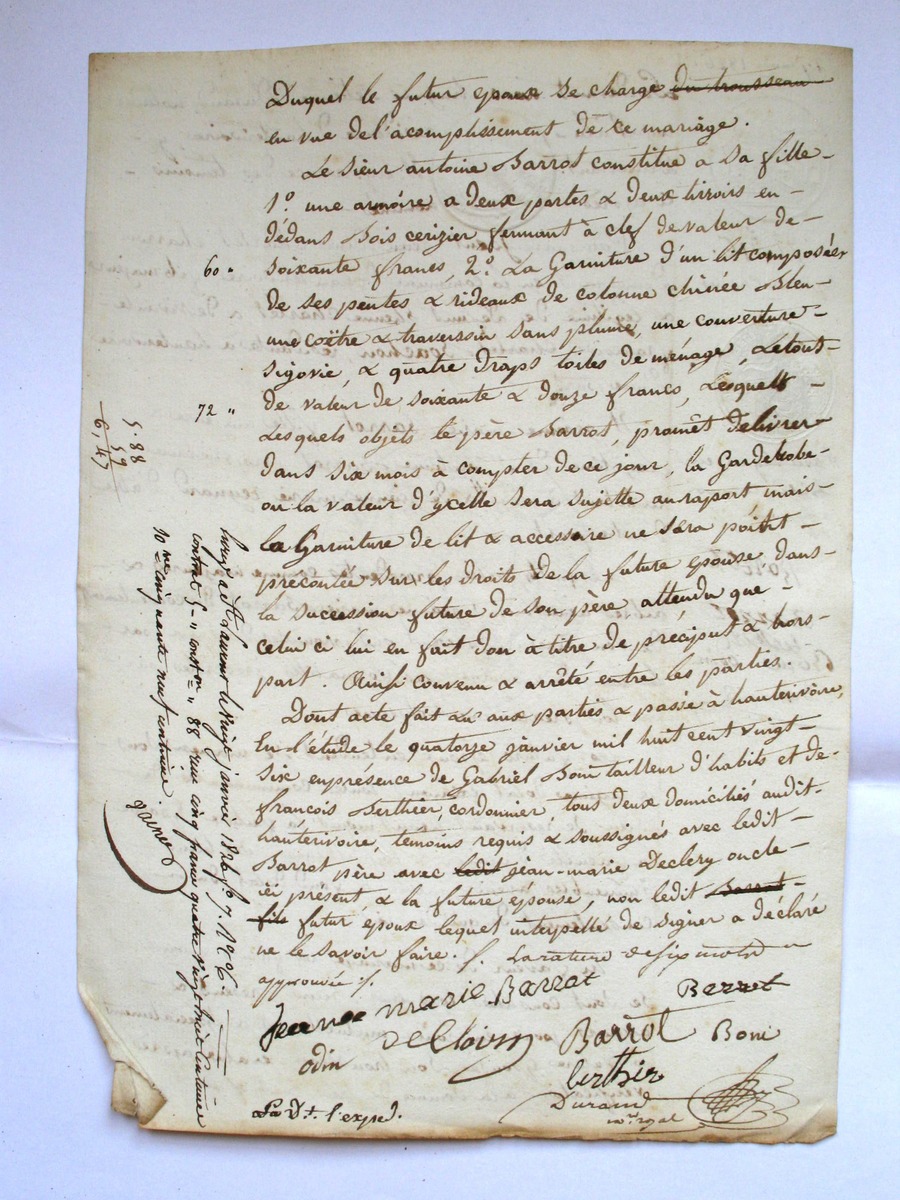 Duquel le futur epoux se charge du trousseau
en vue de l'acomplissement de ce mariage.
Le sieur antoine Barrot constitue a sa fille
1º. une armoire a deux partes & deux tirroirs en
dédans Bois cerizier fermant à clef de valeur de
60 "
soixante francs, 2º. La Garniture d'un lit composéé
de ses pentes & rideaux de colonne chinée Bleu
une coëtre & traverssin sans plume, une couverture
sigovie, & quatre draps toiles de ménage, Le tout
72 "
de valeur de soixante & douze francs, Lesquels
Lesquels objets le père Barrot, promêt delivrer
dans six mois à compter de ce jour, la Garderobe
ou la valeur d'ycelle sera sujette au raport mais
la Garniture de lit & accessoire ne sera point
précontée sur les droits de la future épouse dans
la succession future de son père attendu que
celui ci lui en fait don à titre de précipus & hors
part. Ainsi convenu & arrêté entre les parties.
Dont acte fait Lu aux parties & passé à hauterivoire,
En l'étude le quatorze janvier mil huit cent vingt
six en présence de Gabriel Boni tailleur d'habits et de
françois Berthier, cordonnier, tous deux domiciliés audit
hauterivoire, témoins requis & soussignés avec ledit
Barrot père avec ledit jean-marie Declery oncle
ici présent, & la future épouse, non ledit Barrot
fils futur epoux lequel interpellé de signer a déclaré
ne le savoir faire. /. La rature de six mots
approuvée /.
Jeanne marie Barrot Berrot
odin deCloiry Barrot Boni
berthier
Durand
nre. royal
l'exped.
5.88
59
6,47
janvier 1826, fo 7. Ro c 6.
contrat 5 " conston " 88 reçu cinq francs quatre vingt huit centimes
10me cinquante neuf centimes.